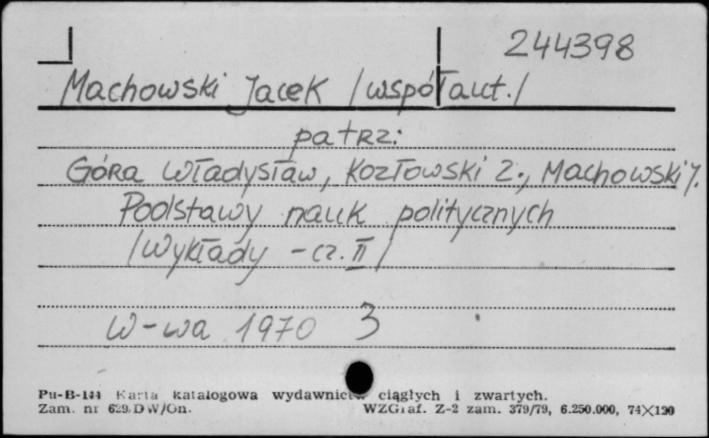 244398
Machowski Jacek /współaut./
patrz:
Góra Władysław, Kozłowski Z., Machowski J.
Podstawy nauk politycznych
/Wykłady - cz. II/
W-wa 1970 3
Pu-B-144 Karta katalogowa wydawnictw ciągłych i zwartych.
Zam. nr 629/DW/Gn. WZGraf. Z-2 zam. 379/79, 6.250.000, 74×120